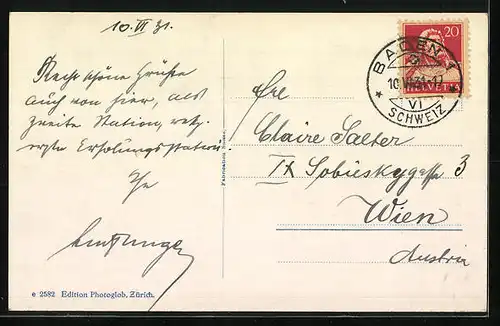 10. VI 31.
Recht schöne Grüße
auch von hier, als
zweite Station, resp.
erste Erholungsstation
Ihr
e 2582 Edition Photoglob, Zürich.
20
HELVETIA
BADEN 1
10.VI.31.-17
VI
SCHWEIZ
Claire Salter
IX Sobieskygasse 3
Wien
Austria